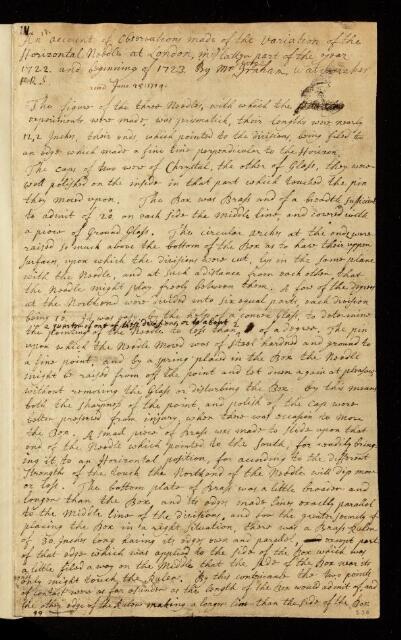 An account of Observations made of the Variation of the
Horizontal Needle at London, in the latter part of the year
1722. and beginning of 1723. By Mr Graham, Watchmaker
F.R.S.
read June
The figure of the three Needles, with which the
experiments were made, was prismatick, their lengths were nearly
12,2 Inches, their ends which pointed to the divisions, being filed to
an edge which made a fine line perpendicular to the Horizon.
The caps of two were of Chrystal, the other of Glass, they were
well polished on the inside in that part which touched the pin
they moved upon. The Box was Brass and of a breadth sufficient
to admit of 20. on each side the Middle line, and cover'd with
a piece of Ground Glass. The circular arches at the ends were
raised so much above the bottom of the Box as to have their upper
surface, upon which the divisions were cut, lye in the same plane
with the Needle, and at such a distance from each other, that
the Needle might play freely between them. A few of the degrees
at the Northend were divided into six equal parts, each division
being 10. It was easy by the help of a convex Glass, to determine
to a quarter of one of these divisions, or to about
the pointing of the Needle to less than of a degree. The pin
upon which the Needle Moved was of Steel harden'd and ground to
a fine point, and by a spring placed in the Box the Needle
might be raised from off the point and let down again at pleasure
without removing the Glass or disturbing the Box. By this means
both the sharpness of the point, and polish of the caps were
better preserved from injury, when there was occasion to move
the Box. A small piece of Brass was made to slide upon that
end of the Needle which pointed to the South, for readily bring-
ing it to an Horizontal position, for according to the different
Strengths of the touch the Northend of the Needle will dip more
or less. The bottom plate of Brass was a little broader and
longer than the Box, and its edges made lines exactly parallel
to the Middle line of the divisions, and for the greater of
placing the Box in a right Situation, there was a Brass Ruler
of 30 Inches long having its edges even and parallel, except part
of that edge which was applied to the side of the Box which was
a little filed away in the Middle that the side of the Box near its
Ends might touch the Ruler. By this contrivance the two points
of contact were as far asunder as the length of the Box would admit of, and
the other edge of the Ruler making a longer line than the side of the Box